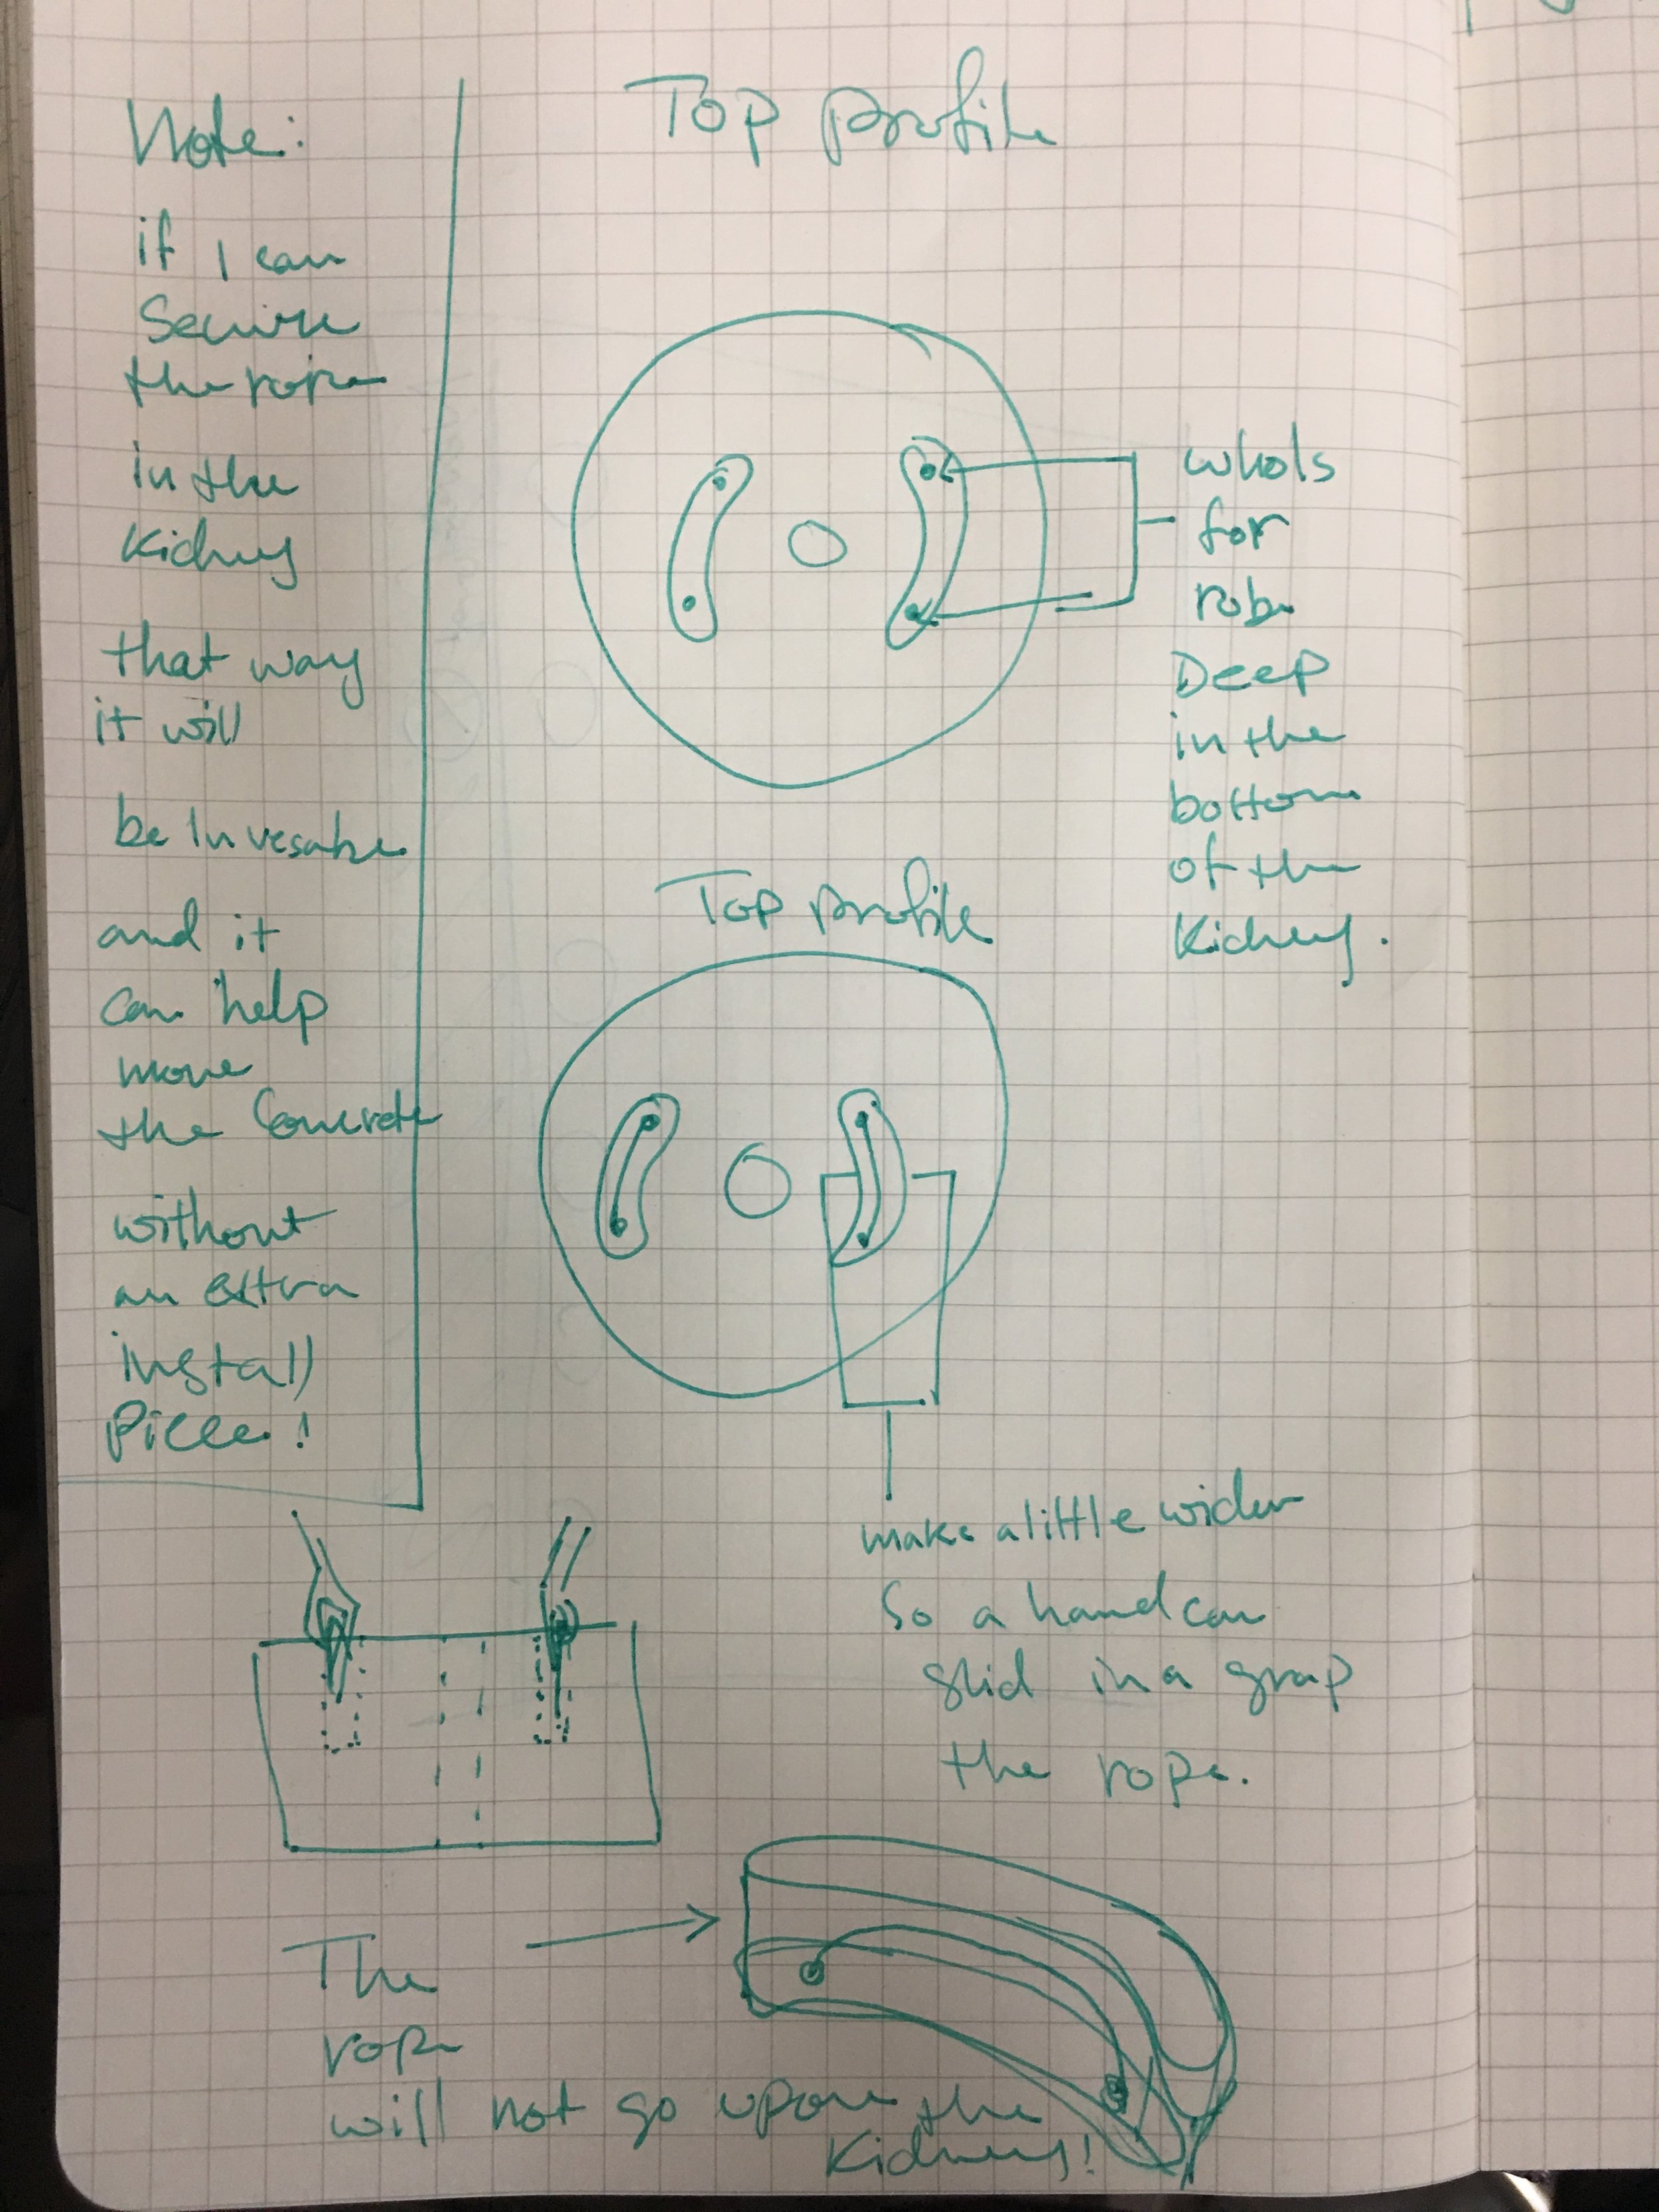 Note:
if I can
Secure
the rope
in the
Kidney
that way
it will
be Invesabe
and it
can help
move
the Concrete
without
an extra
install
Piece!
Top profile
whols
for
robe
Deep
in the
bottom
of the
Kidney.
Top profile
make a little wider
So a hand can
glid in a grap
the rope.
The
rope
will not go upon the
Kidney!